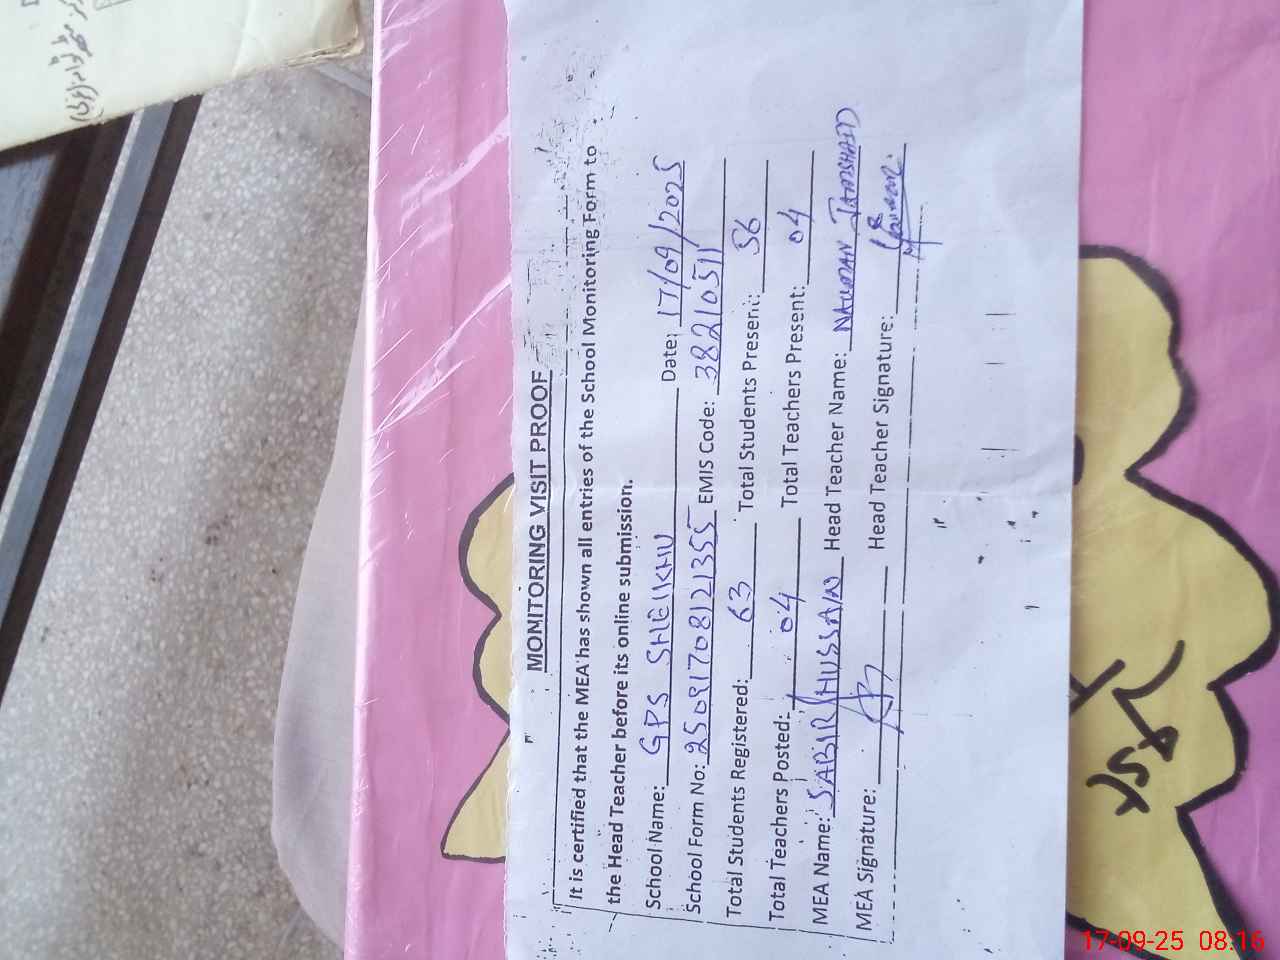 MONITORING VISIT PROOF
It is certified that the MEA has shown all entries of the School Monitoring Form to
the Head Teacher before its online submission.
School Name: GPS SHEIKHU Date: 17/09/2025
School Form No: 25091708121355 EMIS Code: 38210511
Total Students Registered: 63 Total Students Present: 56
Total Teachers Posted: 04 Total Teachers Present: 04
MEA Name: SABIR HUSSAIN Head Teacher Name: NAUMAN JAMSHAID
MEA Signature: Head Teacher Signature:
17-09-25 08:16